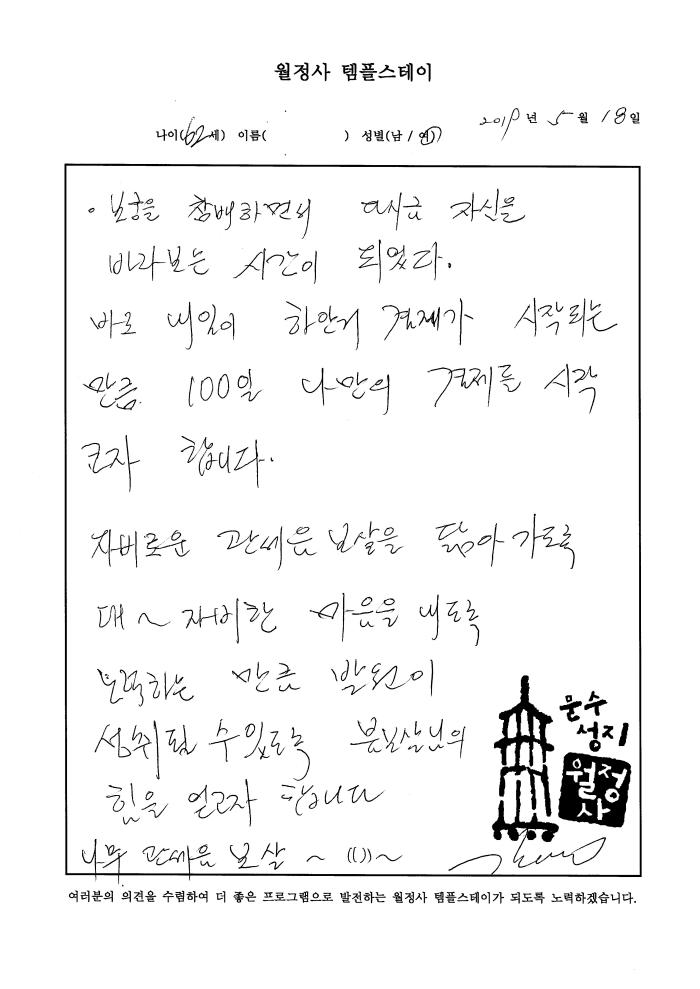 월정사 템플스테이
나이(62세) 이름( ) 성별(남 / 여)
2019 년 5 월 18 일
· 보궁을 참배하면서 다시금 자신을
바라보는 시간이 되었다.
바로 내일이 하안거 결제가 시작되는
만큼 100일 나만의 결제를 시작
코자 합니다.
자비로운 관세음 보살을 닮아 가도록
대 ~ 자비한 마음을 내도록
노력하는 만큼 발원이
성취될 수 있도록 불보살님의
힘을 얻고자 합니다
나무 관세음 보살 ~ (())~
문수
성지
월정
사
여러분의 의견을 수렴하여 더 좋은 프로그램으로 발전하는 월정사 템플스테이가 되도록 노력하겠습니다.